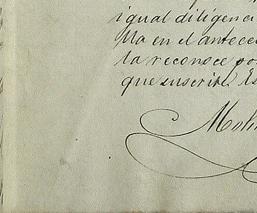 igual diligencia
lla en el antece
la reconoce po
que suscribe. Es
Moli